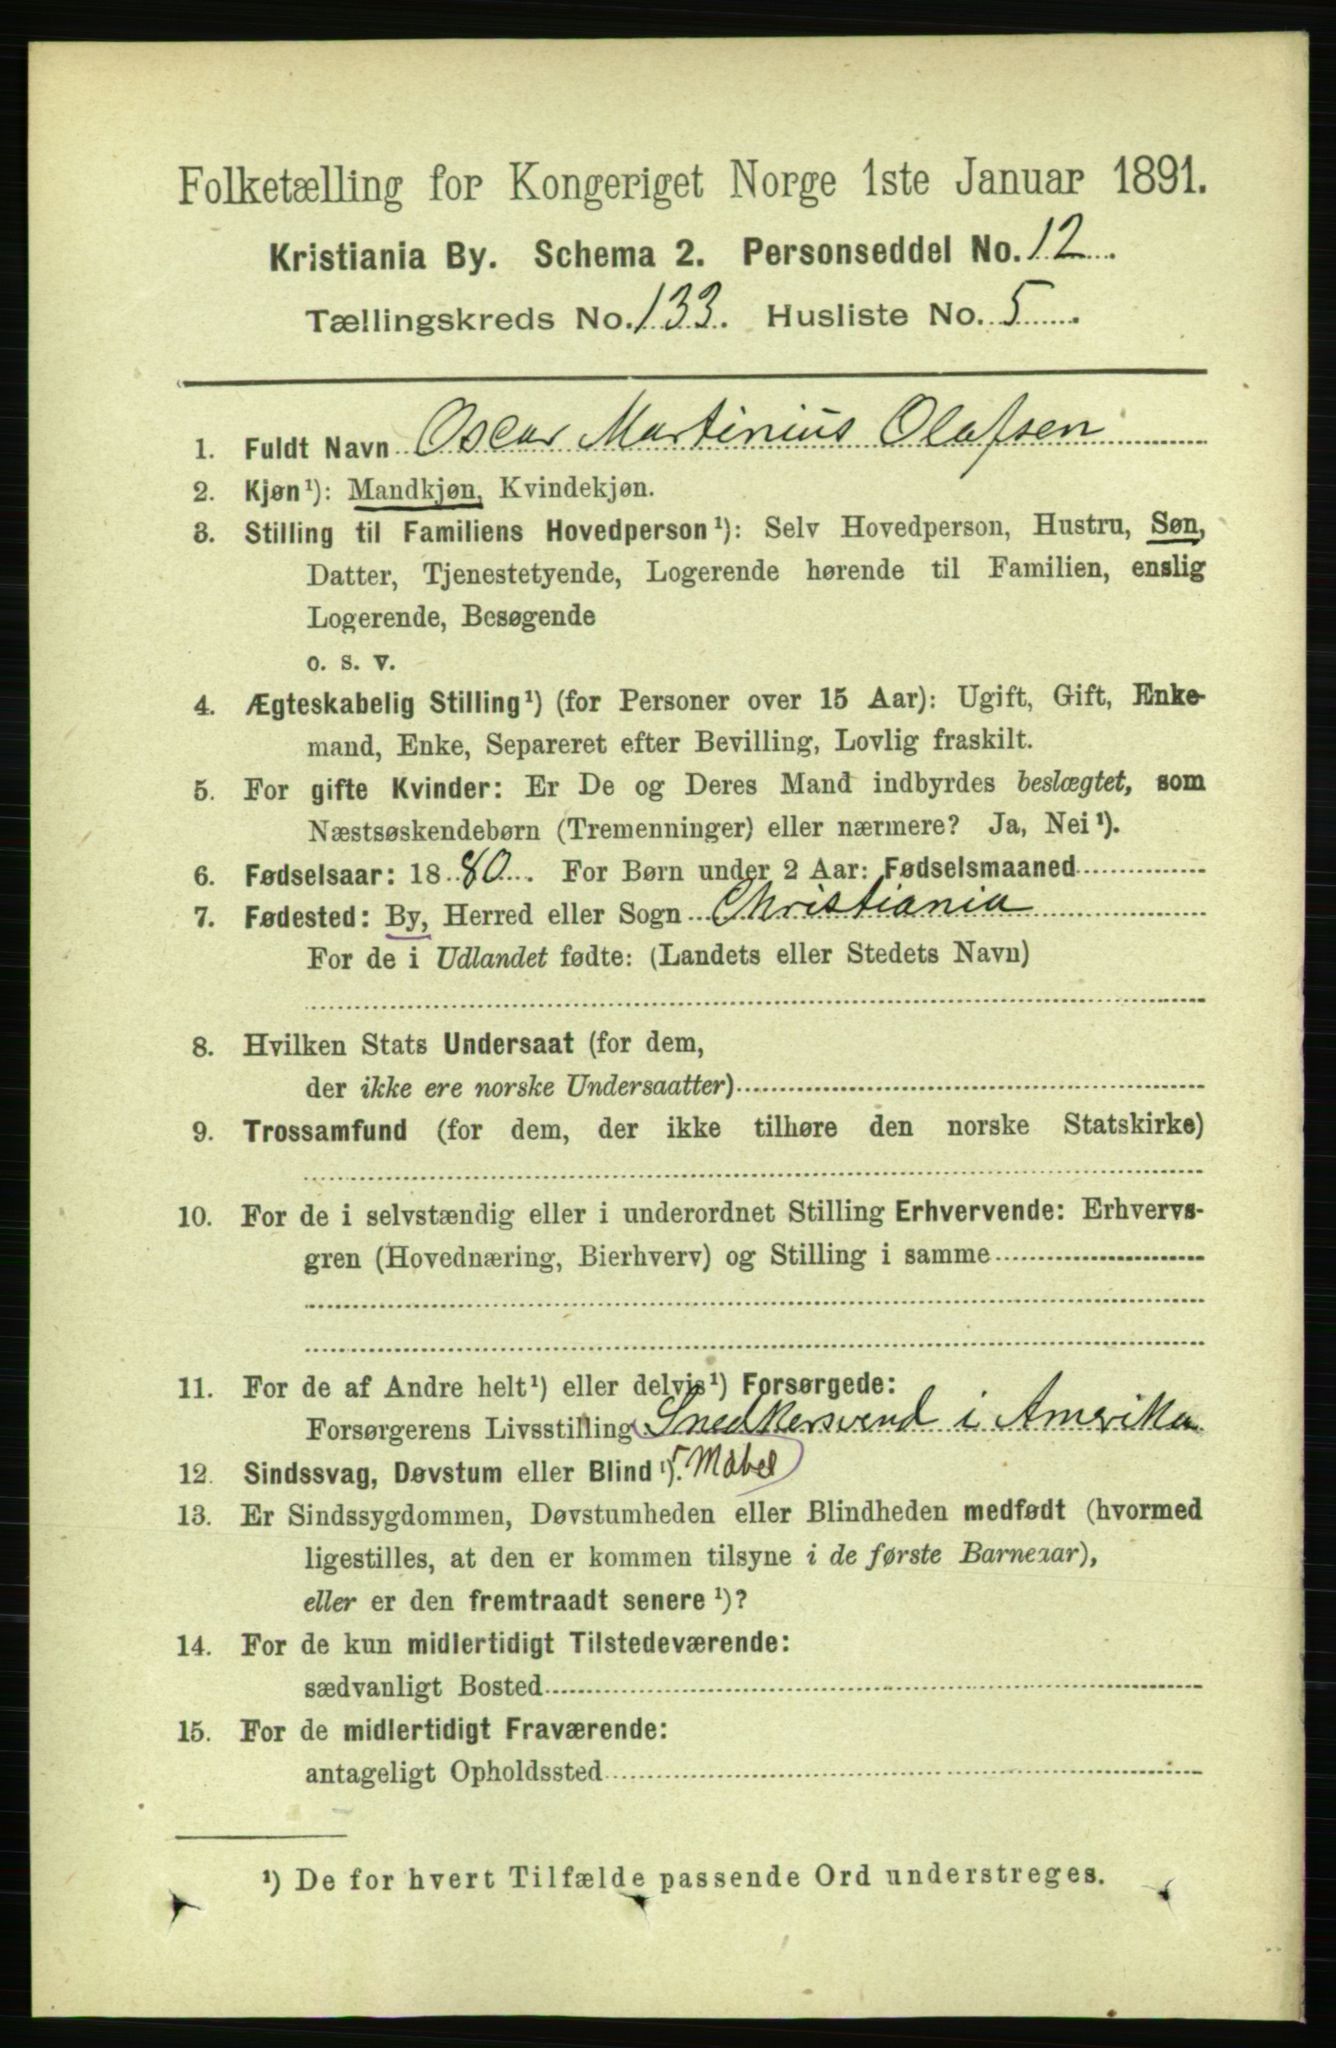 Folketælling for Kongeriget Norge 1ste Januar 1891.
Kristiania By. Schema 2. Personseddel No. 12
Tællingskreds No. 133. Husliste No. 5
1. Fuldt Navn Oscar Martinius Olafsen
2. Kjøn¹): Mandkjøn, Kvindekjøn.
3. Stilling til Familiens Hovedperson¹): Selv Hovedperson, Hustru, Søn,
Datter, Tjenestetyende, Logerende hørende til Familien, enslig
Logerende, Besøgende
o. s. v.
4. Ægteskabelig Stilling¹) (for Personer over 15 Aar): Ugift, Gift, Enke-
mand, Enke, Separeret efter Bevilling, Lovlig fraskilt.
5. For gifte Kvinder: Er De og Deres Mand indbyrdes beslægtet, som
Næstsøskendebørn (Tremenninger) eller nærmere? Ja, Nei¹).
6. Fødselsaar: 1880. For Børn under 2 Aar: Fødselsmaaned
7. Fødested: By, Herred eller Sogn Christiania
For de i Udlandet fødte: (Landets eller Stedets Navn)
8. Hvilken Stats Undersaat (for dem,
der ikke ere norske Undersaatter)
9. Trossamfund (for dem, der ikke tilhøre den norske Statskirke)
10. For de i selvstændig eller i underordnet Stilling Erhvervende: Erhvervs-
gren (Hovednæring, Bierhverv) og Stilling i samme
11. For de af Andre helt¹) eller delvis¹) Forsørgede:
Forsørgerens Livsstilling Snedkersvend i Amerika
12. Sindssvag, Døvstum eller Blind¹). Møbel
13. Er Sindssygdommen, Døvstumheden eller Blindheden medfødt (hvormed
ligestilles, at den er kommen tilsyne i de første Barneaar),
eller er den fremtraadt senere¹)?
14. For de kun midlertidigt Tilstedeværende:
sædvanligt Bosted
15. For de midlertidigt Fraværende:
antageligt Opholdssted
¹) De for hvert Tilfælde passende Ord understreges.